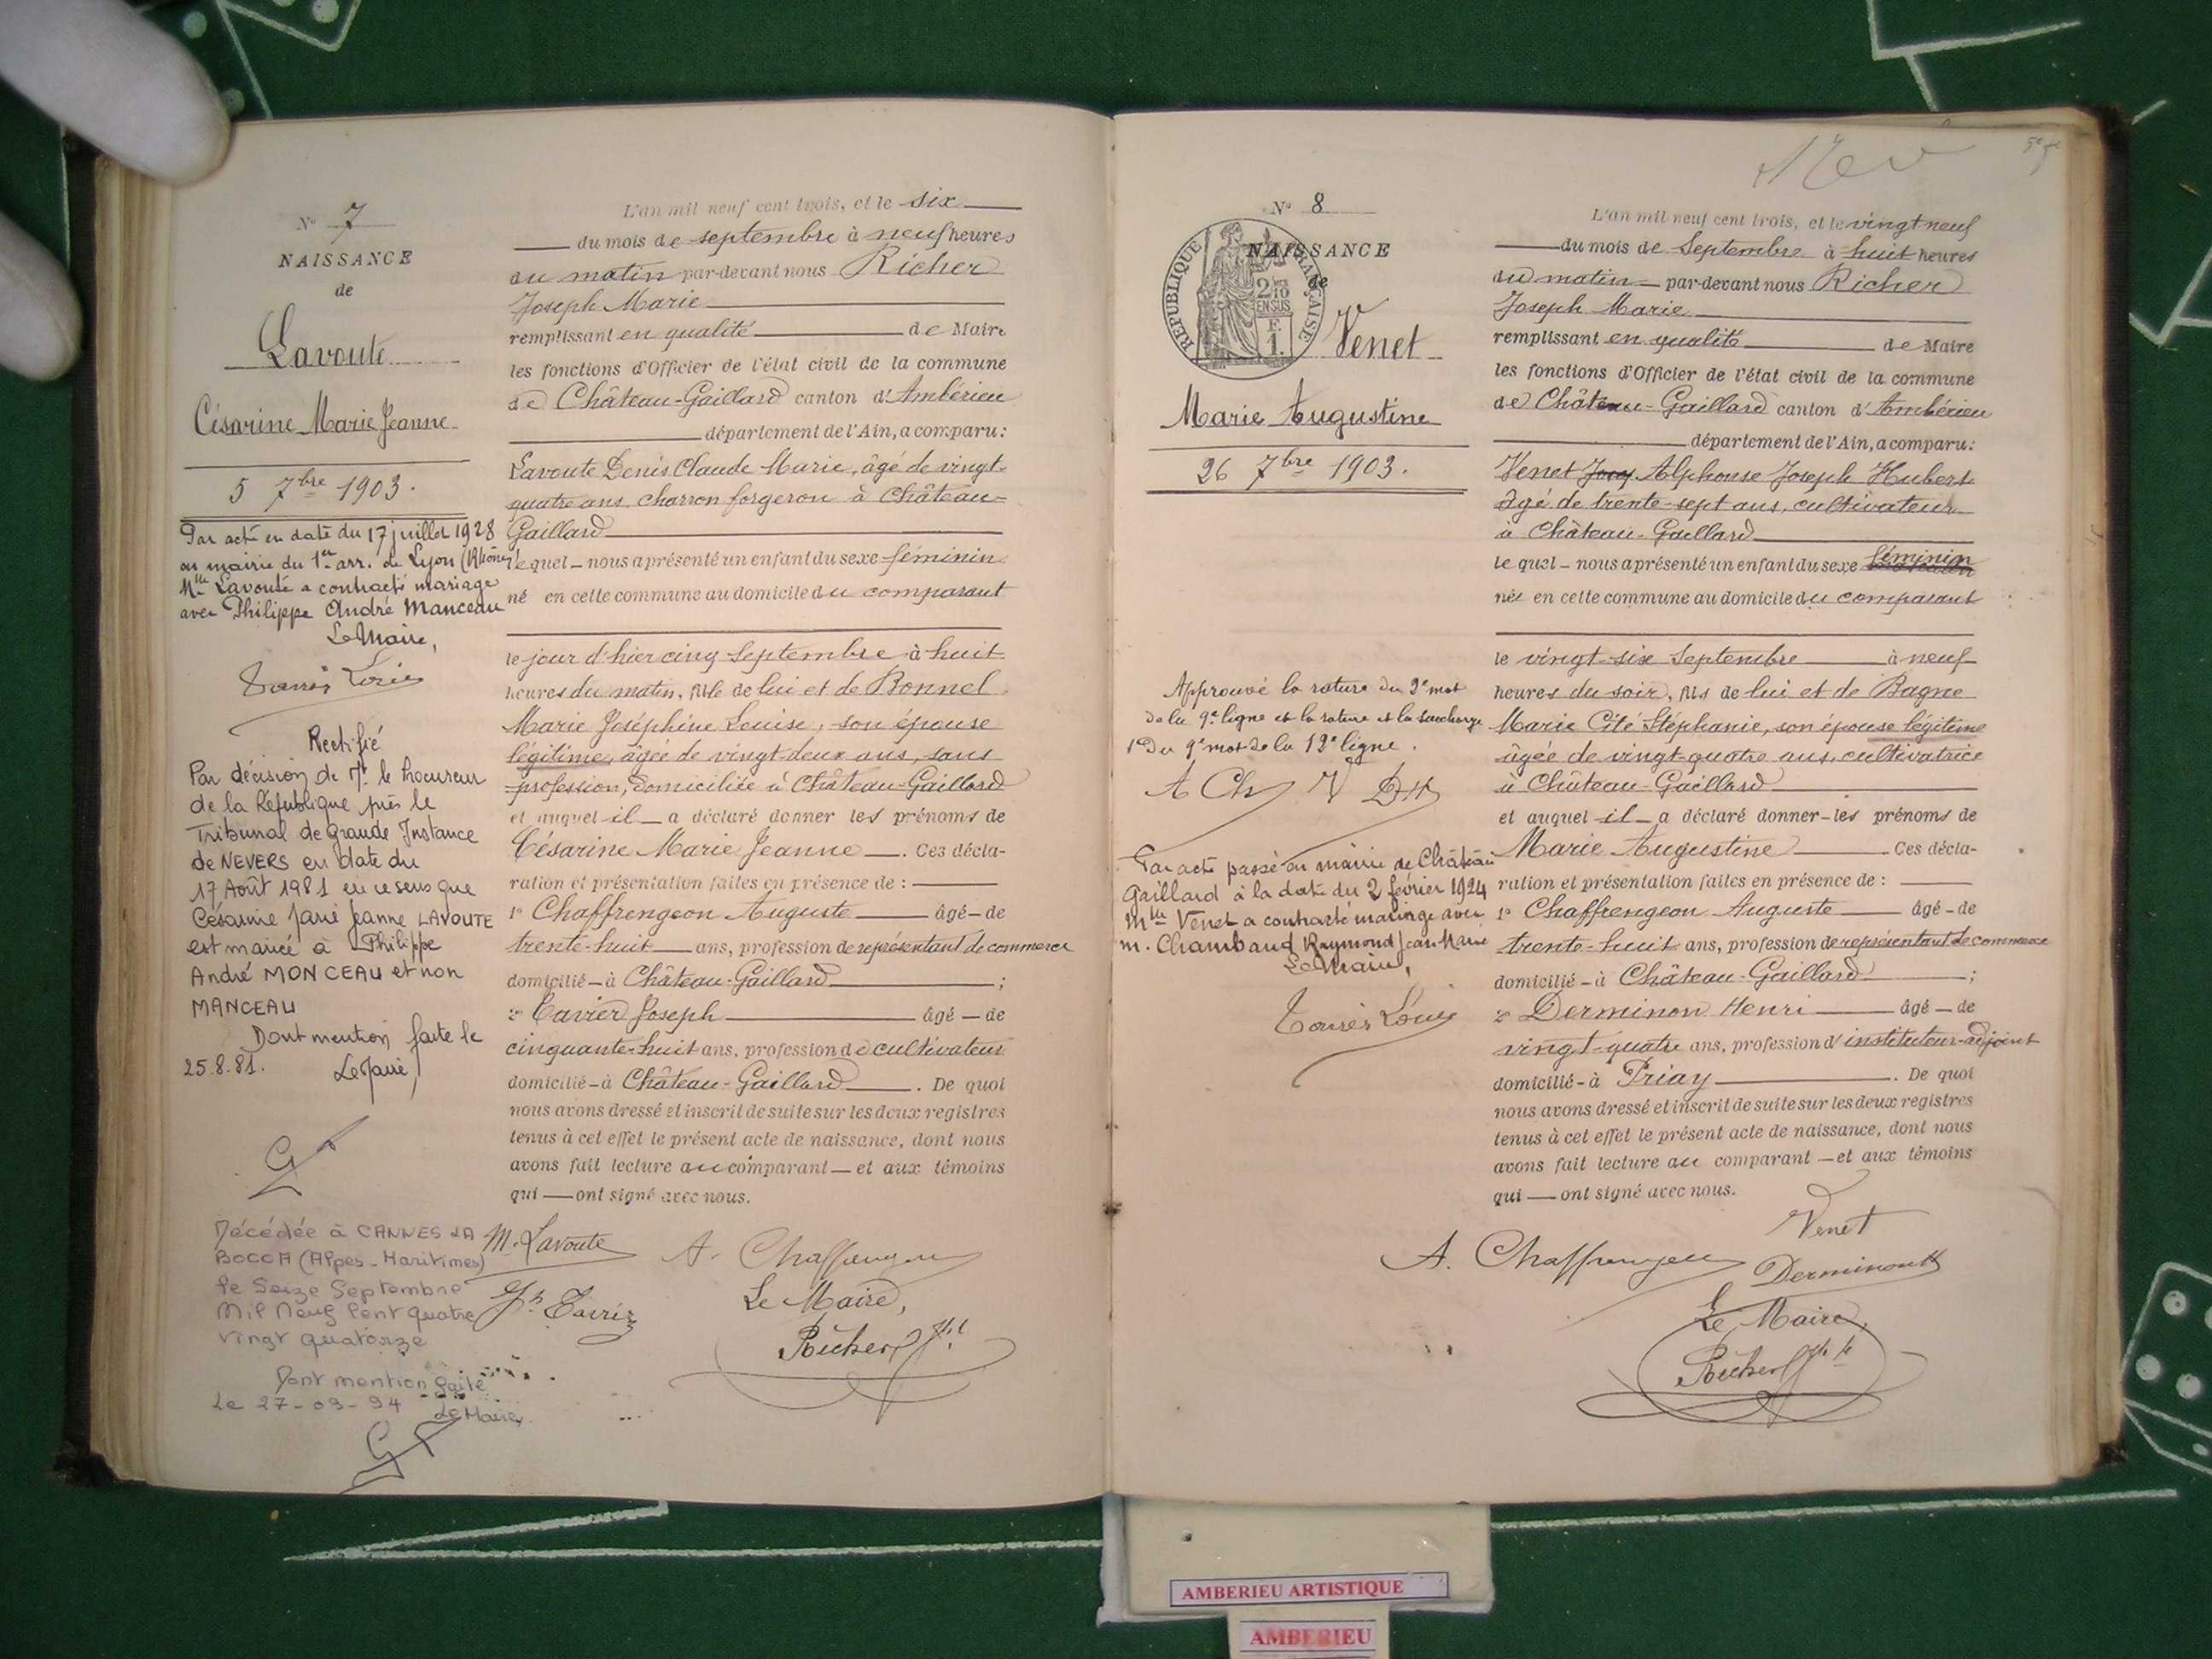 N° 7
NAISSANCE
de
Lavoute
Césarine Marie Jeanne
5 7bre 1903.
Par acte en date du 17 juillet 1928
en mairie du 1er arr. de Lyon (Rhône)
Mlle Lavoute a contracté mariage
avec Philippe André Manceau
Le Maire,
Rectifié
Par décision de Mr le Procureur
de la République près le
Tribunal de Grande Instance
de NEVERS en date du
17 Août 1981 en ce sens que
Césarine Marie Jeanne LAVOUTE
est mariée à Philippe
André MONCEAU et non
MANCEAU
Dont mention faite le
25.8.81. Le Maire,
Décédée à CANNES LA
BOCCA (Alpes-Maritimes)
le Seize Septembre
Mil Neuf Cent Quatre
Vingt Quatorze
Dont mention faite
Le 27-09-94 Le Maire,
L'an mil neuf cent trois, et le six
du mois de septembre à neuf heures
du matin par-devant nous Richer
Joseph Marie
remplissant en qualité de Maire
les fonctions d'Officier de l'état civil de la commune
de Château-Gaillard canton d'Ambérieu
département de l'Ain, a comparu:
Lavoute Denis Claude Marie, âgé de vingt-
quatre ans, charron forgeron à Château-
Gaillard
lequel – nous a présenté un enfant du sexe féminin
né en cette commune au domicile du comparant
le jour d'hier cinq Septembre à huit
heures du matin, fille de lui et de Bonnel
Marie Joséphine Louise, son épouse
légitime, âgée de vingt-deux ans, sans
profession, domiciliée à Château-Gaillard
et auquel il a déclaré donner les prénoms de
Césarine Marie Jeanne . Ces décla-
ration et présentation faites en présence de :
1° Chaffrengeon Auguste âgé – de
trente-huit ans, profession de représentant de commerce
domicilié – à Château-Gaillard ;
2° Tavier Joseph âgé – de
cinquante-huit ans, profession de cultivateur
domicilié – à Château-Gaillard . De quoi
nous avons dressé et inscrit de suite sur les deux registres
tenus à cet effet le présent acte de naissance, dont nous
avons fait lecture au comparant – et aux témoins
qui — ont signé avec nous.
M. Lavoute A. Chaffrengeon
Jh Tavier
Le Maire,
Richer Jh
N° 8
NAISSANCE
de
RÉPUBLIQUE FRANÇAISE
2/10 EN SUS
F. 1.
Venet
Marie Augustine
26 7bre 1903.
Approuvé la rature du 2e mot
de la 9e ligne et la rature et la surcharge
du 9e mot de la 12e ligne.
A Ch V DH
Par acte passé en mairie de Château
Gaillard à la date du 2 février 1924
Mlle Venet a contracté mariage avec
M. Chambaud Raymond Jean Marie
Le Maire,
L'an mil neuf cent trois, et le vingt neuf
du mois de Septembre à huit heures
du matin par-devant nous Richer
Joseph Marie
remplissant en qualité de Maire
les fonctions d'Officier de l'état civil de la commune
de Château-Gaillard canton d'Ambérieu
département de l'Ain, a comparu:
Venet Alphonse Joseph Hubert
âgé de trente-sept ans, cultivateur
à Château-Gaillard
lequel – nous a présenté un enfant du sexe féminin
née en cette commune au domicile du comparant
le vingt-six Septembre à neuf
heures du soir, fils de lui et de Bagne
Marie Cité Stéphanie, son épouse légitime
âgée de vingt-quatre ans, cultivatrice
à Château-Gaillard
et auquel il a déclaré donner – les prénoms de
Marie Augustine Ces décla-
ration et présentation faites en présence de :
1° Chaffrengeon Auguste âgé – de
trente-huit ans, profession de représentant de commerce
domicilié – à Château-Gaillard ;
2° Derminon Henri âgé – de
vingt-quatre ans, profession d'instituteur-adjoint
domicilié – à Priay . De quoi
nous avons dressé et inscrit de suite sur les deux registres
tenus à cet effet le présent acte de naissance, dont nous
avons fait lecture au comparant – et aux témoins
qui — ont signé avec nous.
Venet
A. Chaffrengeon Derminon H
Le Maire,
Richer Jh
AMBERIEU ARTISTIQUE
AMBERIEU